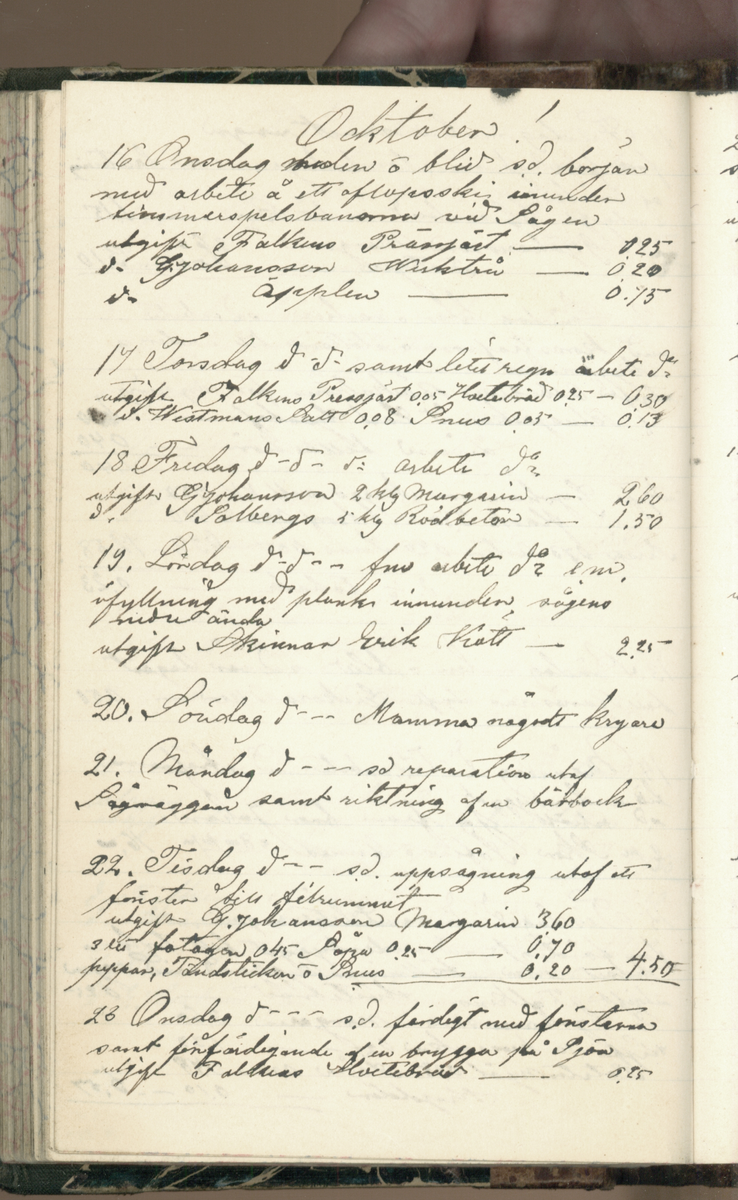 Ocktober !
16 Onsdag mulen o blid sd. början
med arbete å ett aflopsski inunder
timmerspelsbanorna vid Sågen
utgift Falkens Prässjäst — 0,25
do GJohansson — 0,20
do Äpplen — 0.75
17 Torsdag d-d- samt lite regn arbete do
utgift Falkens Pressjäst 0,05 Hvetebröd 0,25 — 0,30
do Westmans Salt 0,08 Snus 0,05 — 0,13
18 Fredag d-d- d: arbete do
utgift GJohansson 2 kg Margarin — 2,60
do Salbergs 5 kg Rödbetor — 1.50
19. Lördag d-d-- fm arbete do em.
ifyllning med plank inunder sågens
nedre ända
utgift Skinnar Erik Kött — 2,25
20. Söndag d--- Mamma något kryare
21. Måndag d--- sd reparation utaf
Sågväggen samt riktning af en bärbock
22. Tisdag d--- sd. uppsågning utaf ett
fönster till filrummet
utgift G.Johansson Margarin 3,60
3 lit fotogen 0,45 Såpa 0,25 — 0,70
peppar, Tändstickor o Snus — 0,20 — 4.50
23 Onsdag d--- sd. färdigt med fönstren
samt förfärdigande af en brygga på Sjön
utgift Falkens Hvetebröd — 0,25